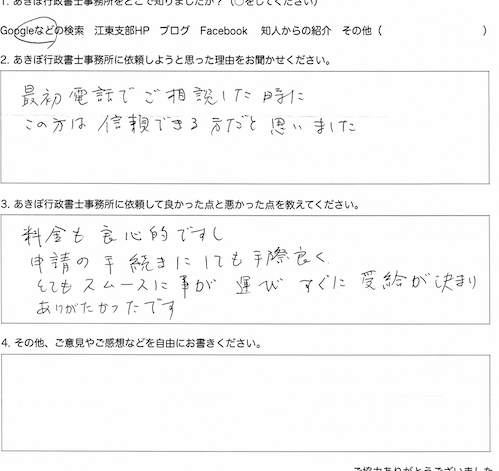 1. あきぼ行政書士事務所をどこで知りましたか？（○をしてください）
Googleなどの検索　江東支部HP　ブログ　Facebook　知人からの紹介　その他（　　　　　　　　）
2. あきぼ行政書士事務所に依頼しようと思った理由をお聞かせください。
最初電話でご相談した時に
この方は信頼できる方だと思いました
3. あきぼ行政書士事務所に依頼して良かった点と悪かった点を教えてください。
料金も良心的ですし
申請の手続きにしても手際良く
とてもスムースに事が運びすぐに受給が決まり
ありがたかったです
4. その他、ご意見やご感想などを自由にお書きください。
ご協力ありがとうございました